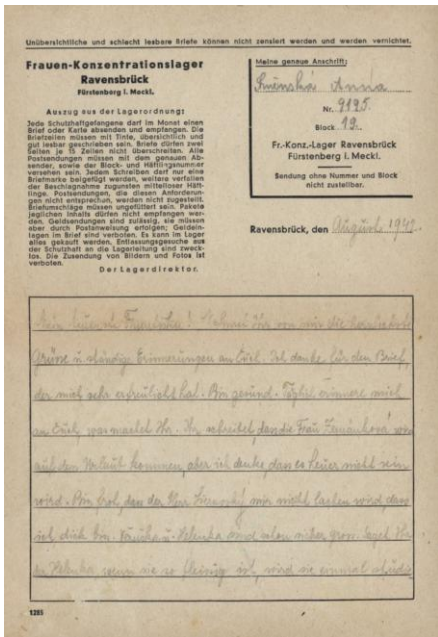 Unübersichtliche und schlecht lesbare Briefe können nicht zensiert werden und werden vernichtet.
Frauen-Konzentrationslager
Ravensbrück
Fürstenberg i. Meckl.
Auszug aus der Lagerordnung:
Jede Schutzhaftgefangene darf im Monat einen
Brief oder Karte absenden und empfangen. Die
Briefzeilen müssen mit Tinte, übersichtlich und
gut lesbar geschrieben sein. Briefe dürfen zwei
Seiten je 15 Zeilen nicht überschreiten. Alle
Postsendungen müssen mit dem genauen Ab-
sender, sowie der Block- und Häftlingsnummer
versehen sein. Jedem Schreiben darf nur eine
Briefmarke beigefügt werden, weitere verfallen
der Beschlagnahme zugunsten mittelloser Häft-
linge. Postsendungen, die diesen Anforderun-
gen nicht entsprechen, werden nicht zugestellt.
Briefumschläge müssen ungefüttert sein. Pakete
jeglichen Inhalts dürfen nicht empfangen wer-
den. Geldsendungen sind zulässig, sie müssen
aber durch Postanweisung erfolgen; Geldein-
lagen im Brief sind verboten. Es kann im Lager
alles gekauft werden. Entlassungsgesuche aus
der Schutzhaft an die Lagerleitung sind zweck-
los. Die Zusendung von Bildern und Fotos ist
verboten.
Der Lagerdirektor.
Meine genaue Anschrift:
Anna
Nr. 9195.
Block 19.
Fr.-Konz.-Lager Ravensbrück
Fürstenberg i. Meckl.
Sendung ohne Nummer und Block
nicht zustellbar.
Ravensbrück, den August 194
von mir
Grüsse u. ständige Erinnerungen an Euch. Ich danke für den Brief,
der mich sehr erfreulicht hat. Bin gesund. erinnere mich
an Euch, was machet Ihr. Ihr schreibet, dass die Frau
auf den kommen, aber ich denke, dass es heuer nicht sein
wird. Bin froh, dass der Herr nicht lachen wird, dass
ich dick bin. u. Helenka sind schon sicher gross. Saget Ihr
Helenka wenn sie so fleissig ist, wird sie einmal
1285